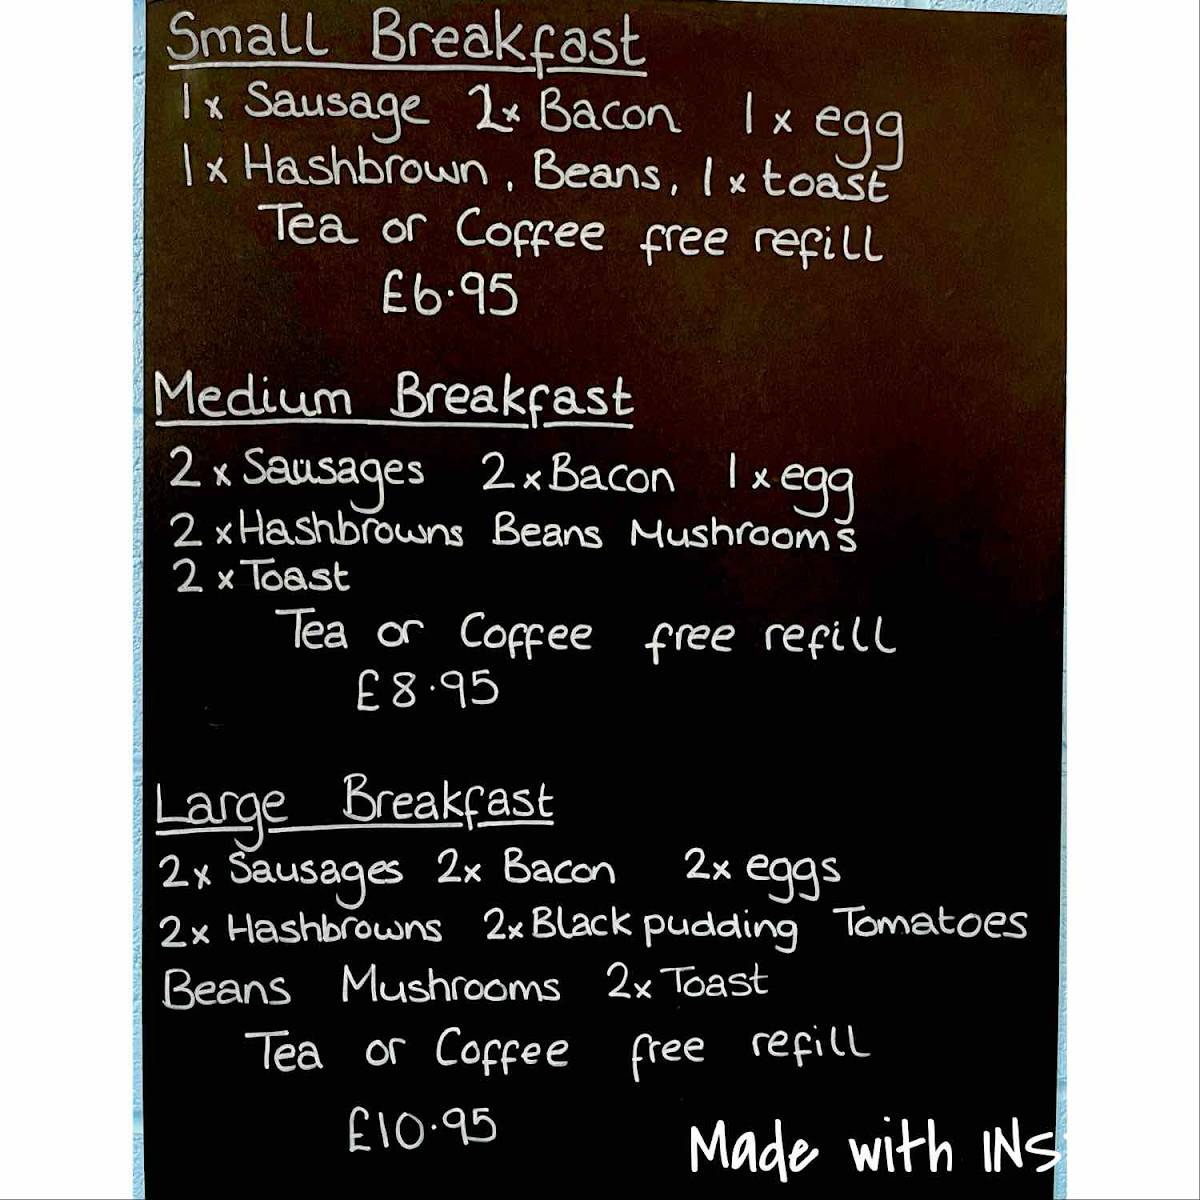 Small Breakfast
1x Sausage 2x Bacon 1x egg
1x Hashbrown, Beans, 1x toast
Tea or Coffee free refill
£6.95
Medium Breakfast
2x Sausages 2x Bacon 1x egg
2x Hashbrowns Beans Mushrooms
2x Toast
Tea or Coffee free refill
£8.95
Large Breakfast
2x Sausages 2x Bacon 2x eggs
2x Hashbrowns 2x Black pudding Tomatoes
Beans Mushrooms 2x Toast
Tea or Coffee free refill
£10.95
Made with INS